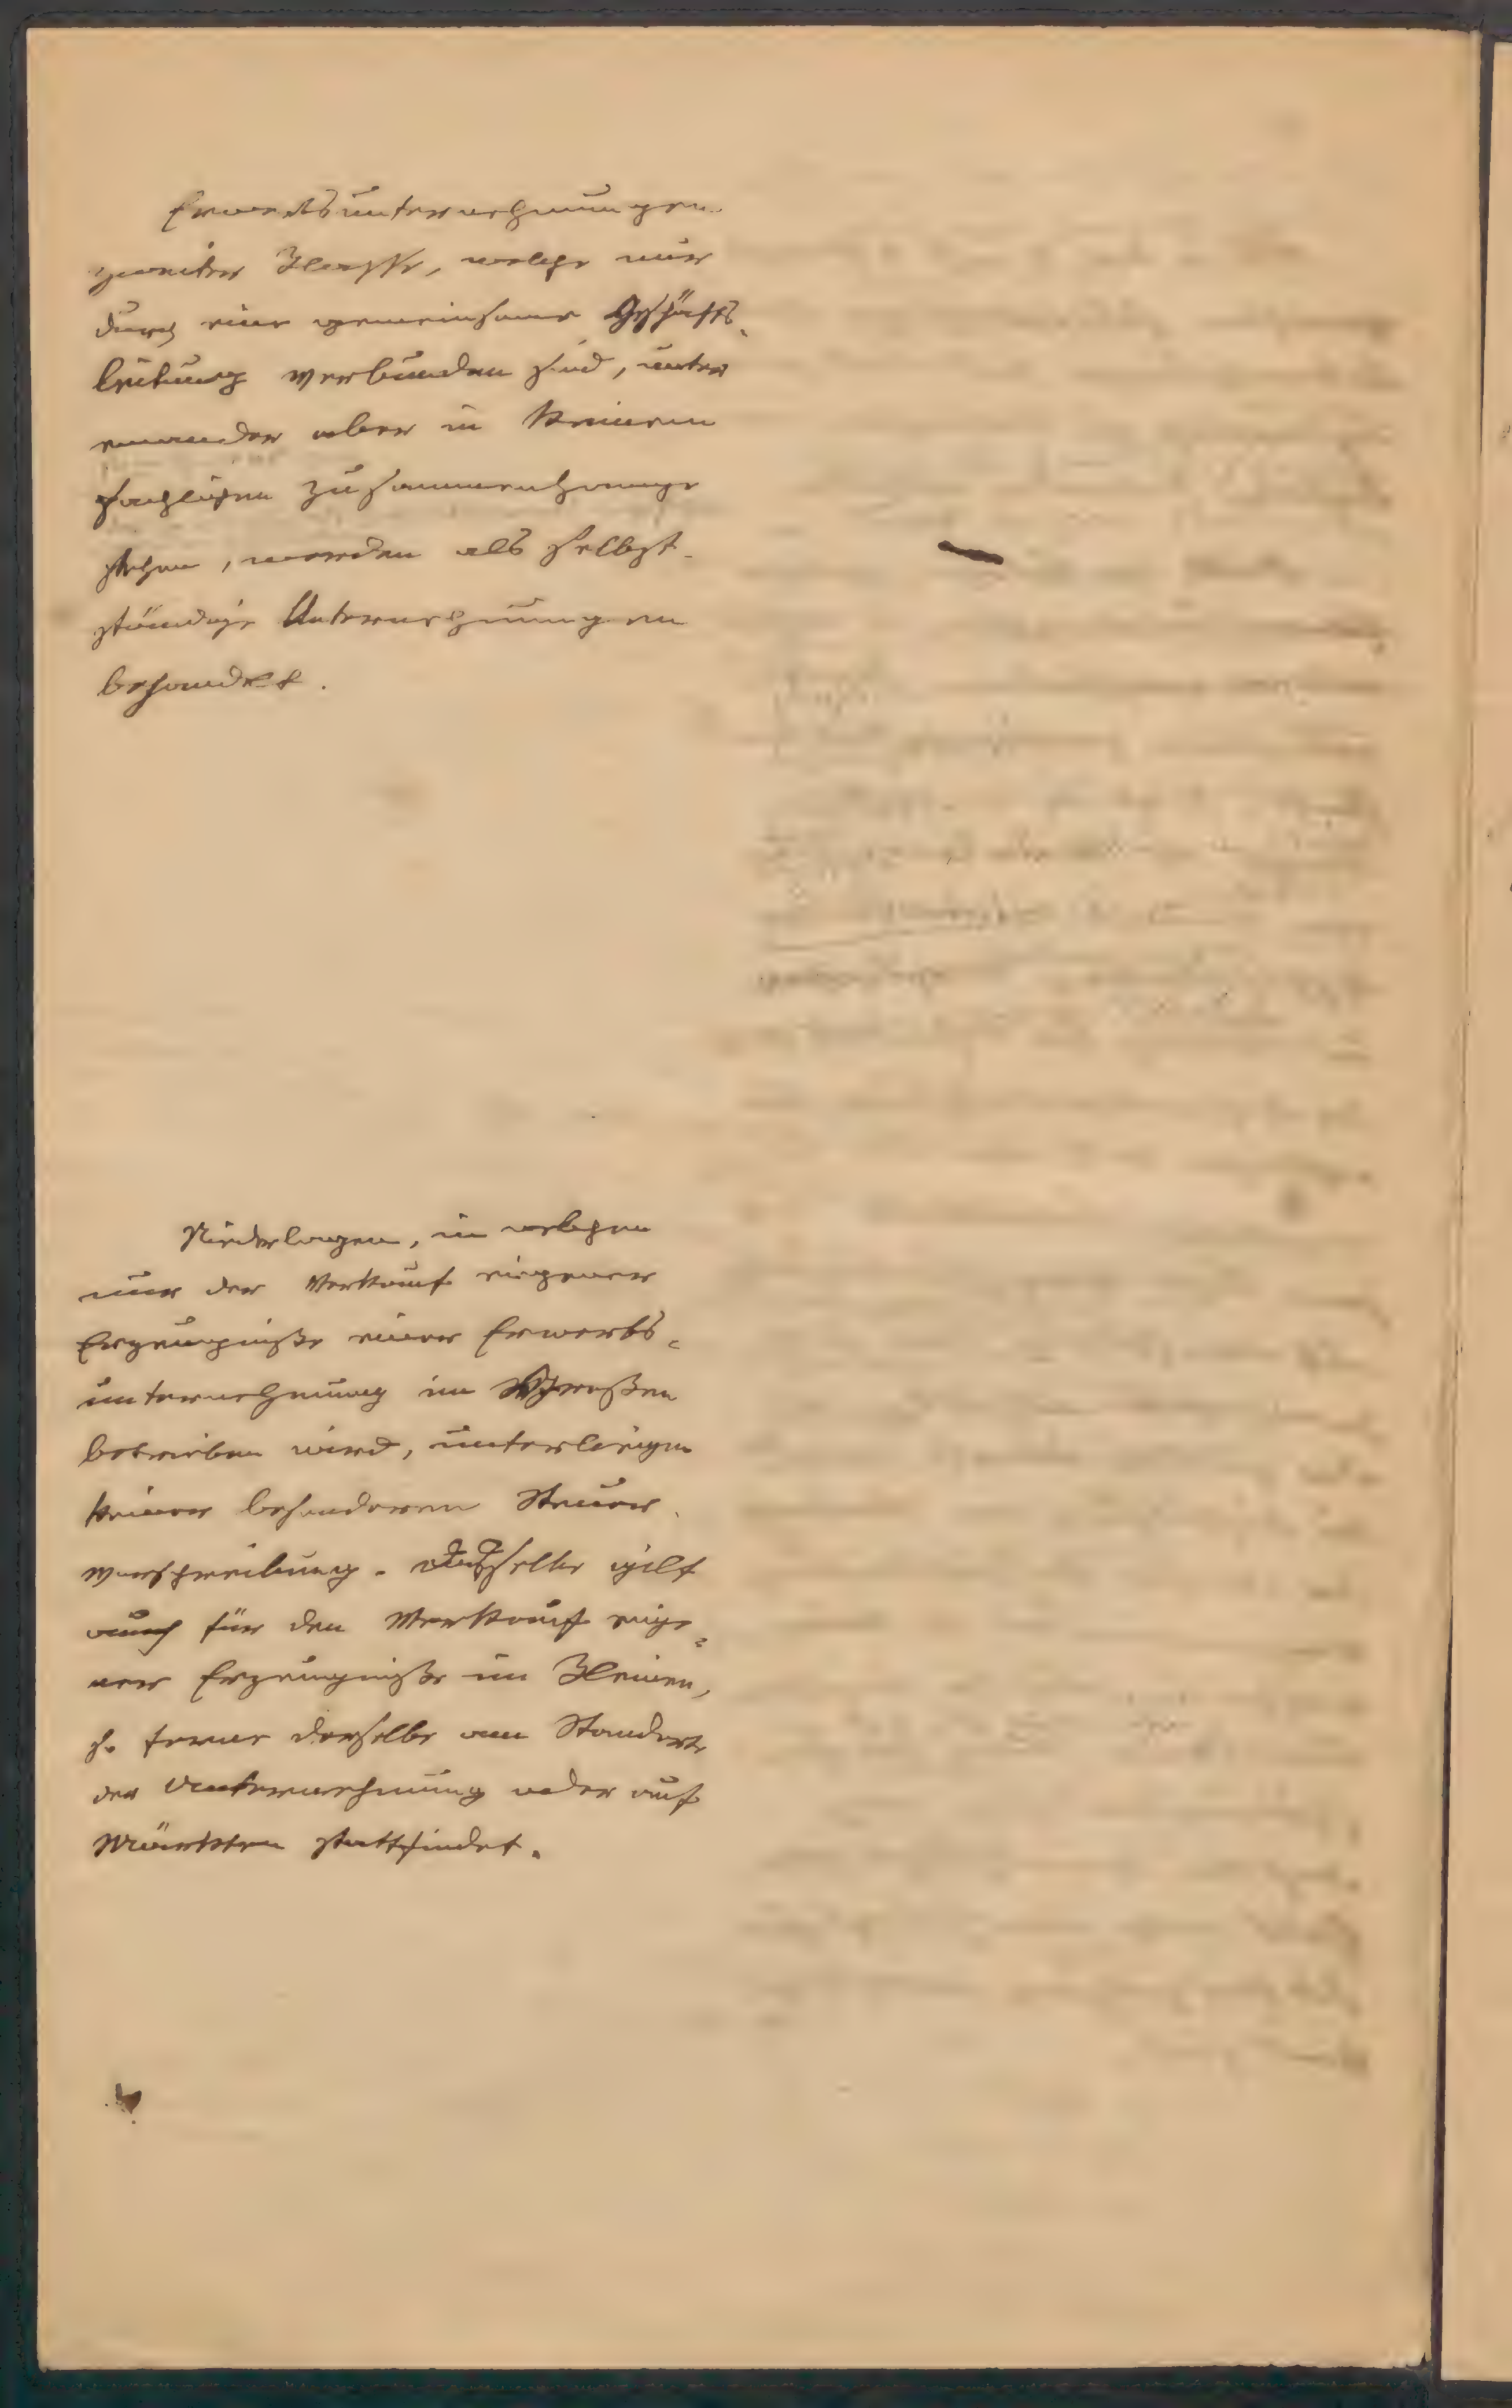 Erwerbsunternehmungen
zweiter Klasse, welche nur
durch eine gemeinsame Geschäfts-
leitung verbunden sind, unter
einander aber in keinem
sachlichen Zusammenhange
stehen, werden als selbst-
ständige Unternehmungen
behandelt.
Niederlagen, in welchen
nur der Verkauf eigener
Erzeugniße einer Erwerbs=
unternehmung im Großen
betrieben wird, unterliegen
keiner besonderen Steuer-
vorschreibung. Dasselbe gilt
auch für den Verkauf eige=
ner Erzeugniße im Kleinen,
so ferne derselbe am Standorte
der Unternehmung oder auf
Märkten stattfindet.